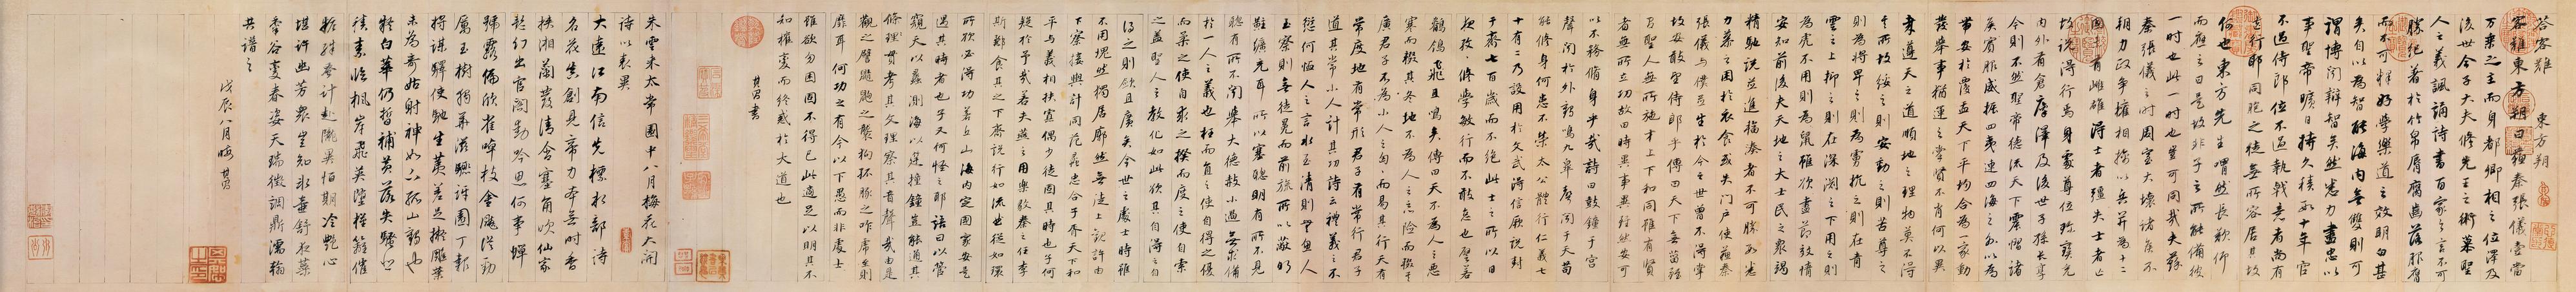 答客難 東方朔
客難東方朔曰蘇秦張儀壹當
萬乘之主而身都卿相之位澤及
後世今子大夫修先王之術慕聖
人之義諷誦詩書百家之言不可
勝紀著於竹帛唇腐齒落服膺
而不可釋好學樂道之效明白甚
矣自以為智能海內無雙則可
謂博聞辯智矣然悉力盡忠以
事聖帝曠日持久積數十年官
不過侍郎位不過執戟意者尚有
遺行耶同胞之徒無所容居其故
何也東方先生喟然長歎仰
而應之曰是故非子之所能備彼
一時也此一時也豈可同哉夫蘇
秦張儀之時周室大壞諸侯不
朝力政爭權相擒以兵并為十二
國未有雌雄得士者彊失士者亡
故說得行焉身處尊位珍寶充
內外有倉廩澤及後世子孫長享
今則不然聖帝德流天下震慴諸
侯賓服威振四夷連四海之外以為
帶安於覆盂天下平均合為一家動
發舉事猶運之掌賢不肖何以異
哉遵天之道順地之理物莫不得
其所故綏之則安動之則苦尊之
則為將卑之則為虜抗之則在青
雲之上抑之則在深淵之下用之則
為虎不用則為鼠雖欲盡節效情
安知前後夫天地之大士民之眾竭
精馳說並進輻湊者不可勝數悉
力慕之困於衣食或失門戶使蘇秦
張儀與僕並生於今之世曾不得掌
故安敢望侍郎乎傳曰天下無菑雖
有聖人無所施才上下和同雖有賢
者無所立功故曰時異事異雖然安可
以不務脩身乎哉詩曰鼓鐘于宮
聲聞於外鶴鳴九皋聲聞于天苟
能修身何患不榮太公體行仁義七
十有二乃設用於文武得信厥說封
于齊七百歲而不絕此士之所以日
夜孜孜修學敏行而不敢怠也譬若
鶺鴒飛且鳴矣傳曰天不為人之惡
寒而輟其冬地不為人之惡險而輟其
廣君子不為小人之匈匈而易其行天有
常度地有常形君子有常行君子
道其常小人計其功詩云禮義之不
愆何恤人之言水至清則無魚人
至察則無徒冕而前旒所以蔽明
黈纊充耳所以塞聰明有所不見
聰有所不聞舉大德赦小過無求備
於一人之義也枉而直之使自得之優
而柔之使自求之揆而度之使自索
之蓋聖人之教化如此欲其自得之自
得之則敏且廣矣今世之處士時雖
不用塊然獨居廓然無徒上觀許由
下察接輿計同范蠡忠合子胥天下和
平與義相扶寡偶少徒固其時也子何
疑於予哉若夫燕之用樂毅秦之任李
斯酈食其之下齊說行如流曲從如環
所欲必得功若丘山海內定國家安是
遇其時者也子又何怪之耶語曰以管
窺天以蠡測海以筳撞鐘豈能通其
條理貫考其文理發其音聲哉由是
觀之譬猶鼱鼩之襲狗孤豚之咋虎至則
靡耳何功之有今以下愚而非處士
雖欲勿困固不得已此適足以明其不
知權變而終惑於大道也
其昌書
朱雲來太常園中八月梅花大開
詩以表異
大遠江南信先標水部詩
名花 創見帝力本無時香
挾湘蘭發清含塞角吹仙家
能幻出官閣動吟思何事蟬
號露偏欣雀啅枝金飈從勁
厲玉樹獨 滋驪訝園丁報
將謀驛使馳生荑差足擬雕葉
未為奇姑射神如 孤山鶴也
疑白華仍 補黃落失騷悲
積素臨楓岸飛英墮 籬催
粧 計赴隴異 期冷艷心
堪許幽芳眾豈知 壺舒夜藥
黍谷變春姿天瑞徵調鼎濡翰
共譜之
戊辰八月晦 其昌